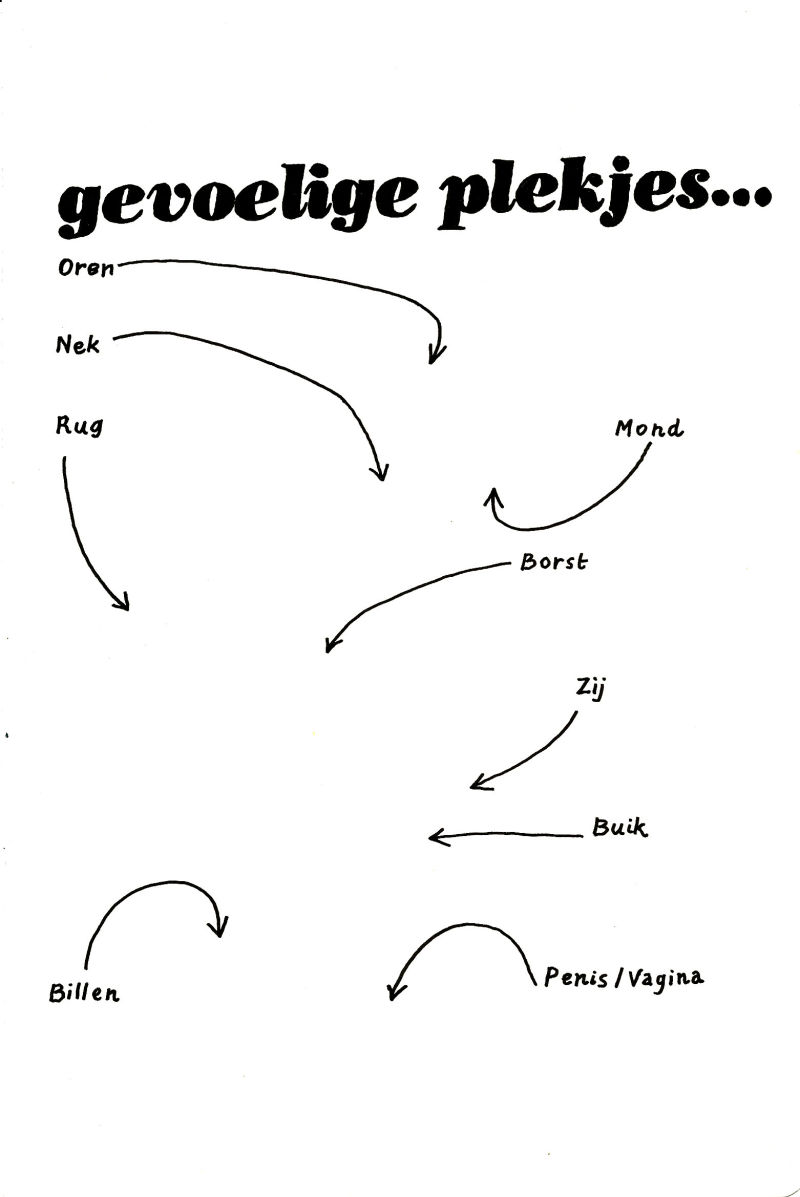 gevoelige plekjes...
Oren
Nek
Rug
Mond
Borst
Zij
Buik
Billen
Penis/Vagina